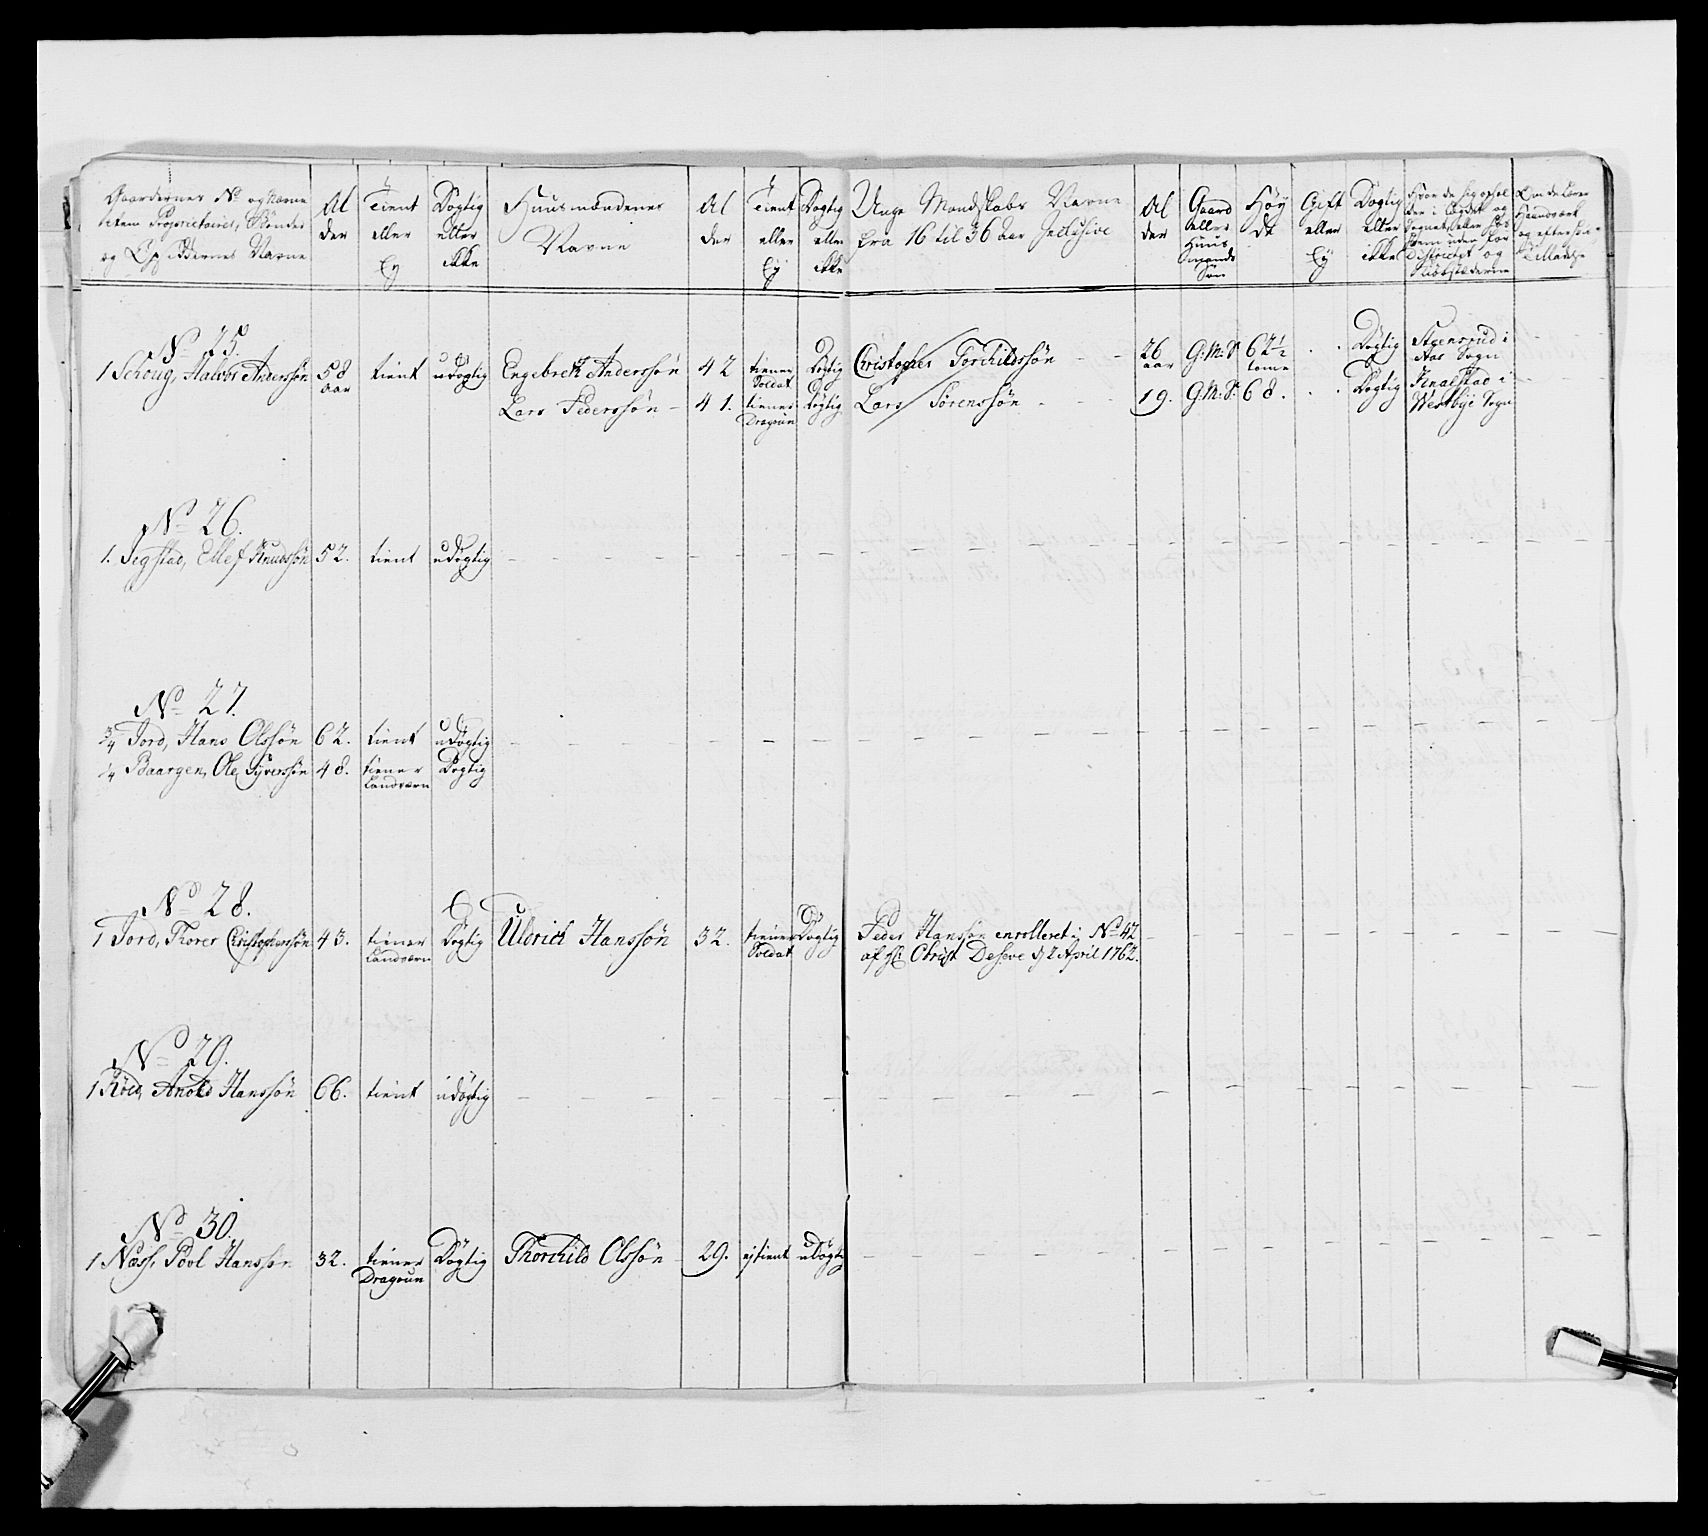 Gaardernes No og Navne
item Proprietairers, Bønder
og Opsiddernes Navne
Al
der
Tient
eller
Ey
Dygtig
eller
ikke
Huusmændenes
Navne
Al
der
Tient
eller
Ey
Dygtig
eller
ikke
Unge Mandskabs Navne
fra 16 til 36 aar Inclusive
Al
der
Gaard
eller
Huus
mands
Søn
Høy
de
Gift
eller
Ey
Dygtig
eller
ikke
Hvor de sig ophol
der i Lægdet og
Sognet, eller
uden for
Districtet og
Kiøbstæderne
Om de lærer
Haandværk
og efter
Tilladelse
No 25.
1 Schoug, Halvor Anderssøn 58 aar tient udygtig Engebreth Anderssøn 42 tiener Soldat Dygtig Christopher Torchildssøn - - 26 aar G:M:S: 62½ tome . . Dygtig Steensrud i Aas Sogn
Lars Pederssøn - 41. tiener Dragoun Dygtig Lars Sørenssøn - - - 19. G:M:S: 68. . . Dygtig Kinalstad i Westbye Sogn
No 26.
1. Sigstad, Ellef Knudssøn 52. tient udygtig
No 27.
¾ Jord, Hans Olssøn 62. tient udygtig
¼ Baargen, Ole Syverssøn 48. tiener Landværn Dygtig
No 28.
1 Jord, Thorer Christopherssøn 43. tiener Landværn Dygtig Uldrich Hanssøn 32. tiener Soldat Dygtig Peder Hanssøn enrolleret i No 42
af Christ Deseve d April 1762.
No 29.
1 Röed, Anold Hanssøn 66. tient udygtig
No 30.
1 Næss, Povl Hanssøn 32. tiener Dragoun Dygtig Thorchild Olssøn 29. ej tient udygtig